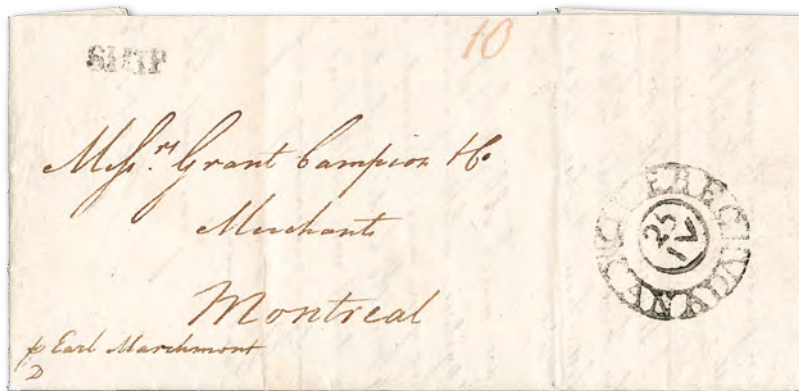 SHIP
10
Messrs. Grant Campion & Co
Merchants
Montreal
p Earl Marchmont
D
QUEBEC CANADA
25